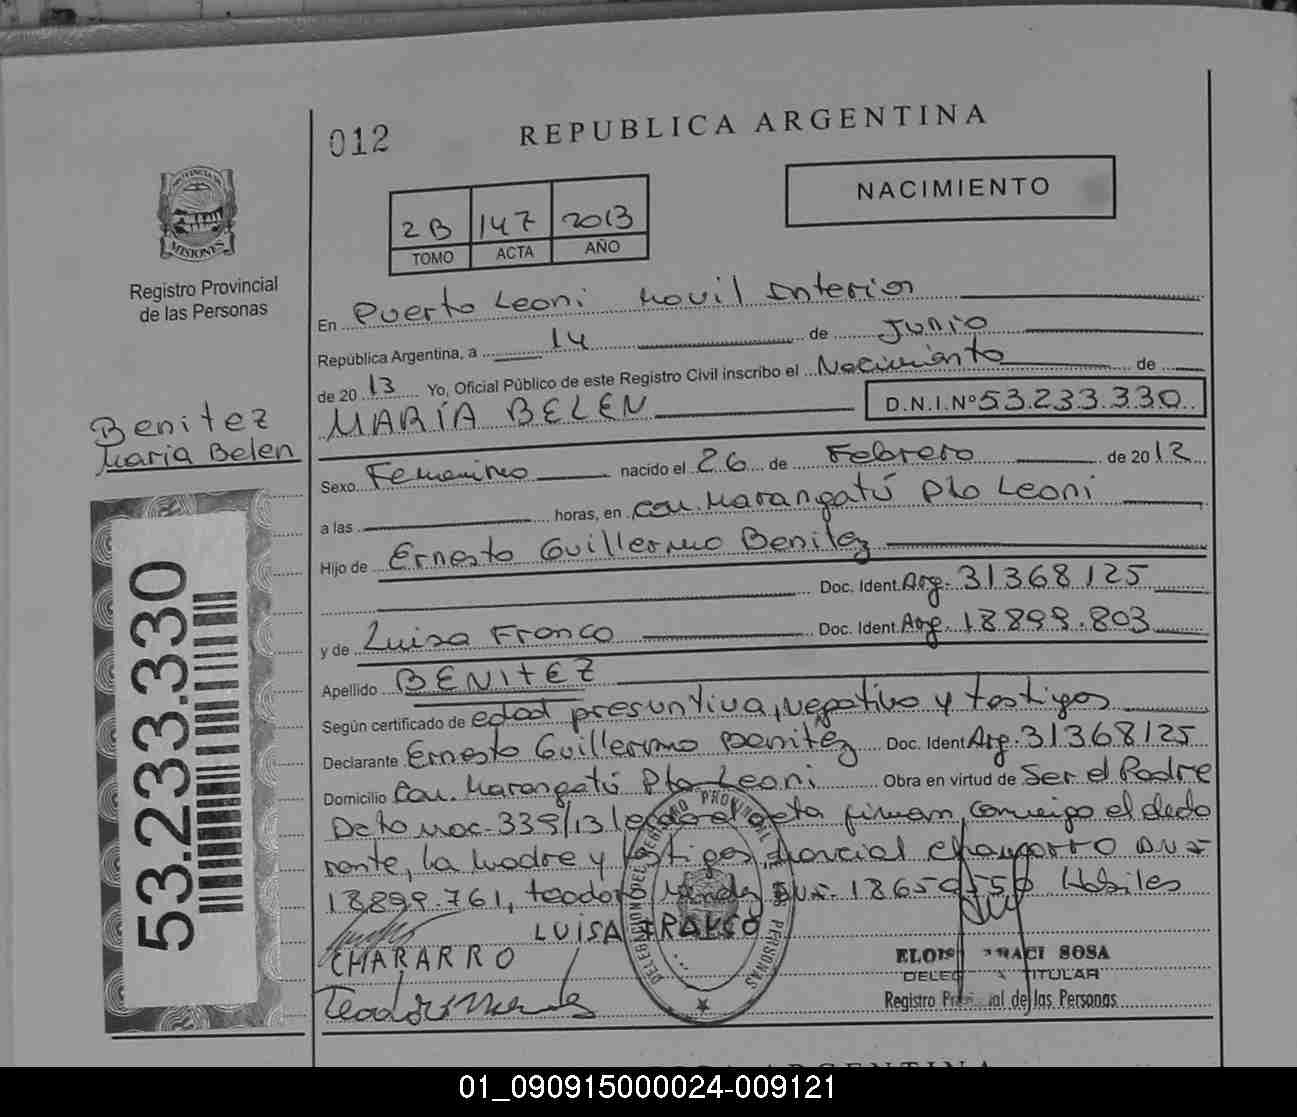 012
REPUBLICA ARGENTINA
NACIMIENTO
2B 147 2013
TOMO ACTA AÑO
PROVINCIA DE
MISIONES
Registro Provincial
de las Personas
En Puerto Leoni Movil Interior
República Argentina, a 14 de Junio
de 20 13 Yo, Oficial Público de este Registro Civil inscribo el Nacimiento de
MARÍA BELEN D.N.I.Nº 53.233.330
Benitez
Maria Belen
Sexo Femenino nacido el 26 de Febrero de 20 12
a las horas, en Com. Marangatú Pto Leoni
Hijo de Ernesto Guillermo Benitez
Doc. Ident. Arg. 31368125
y de Luisa Franco Doc. Ident. Arg. 18.899.803
Apellido BENITEZ
Según certificado de edad presuntiva, negativo y testigos
Declarante Ernesto Guillermo Benitez Doc. Ident. Arg. 31368125
Domicilio Com. Marangatú Pto Leoni Obra en virtud de Ser el Padre
Dcto Nac. 339/13 leido el acta firman conmigo el decla
rante, la madre y testigos Marcial Chaparro DNI
18.899.761, teodoro DNI. Habiles
LUISA FRANCO
CHARARRO
Teodoro
DELEGACION DEL REGISTRO PROVINCIAL DE LAS PERSONAS
SOSA
TITULAR
Registro de las Personas
53.233.330
ARGENTINA
01_090915000024-009121